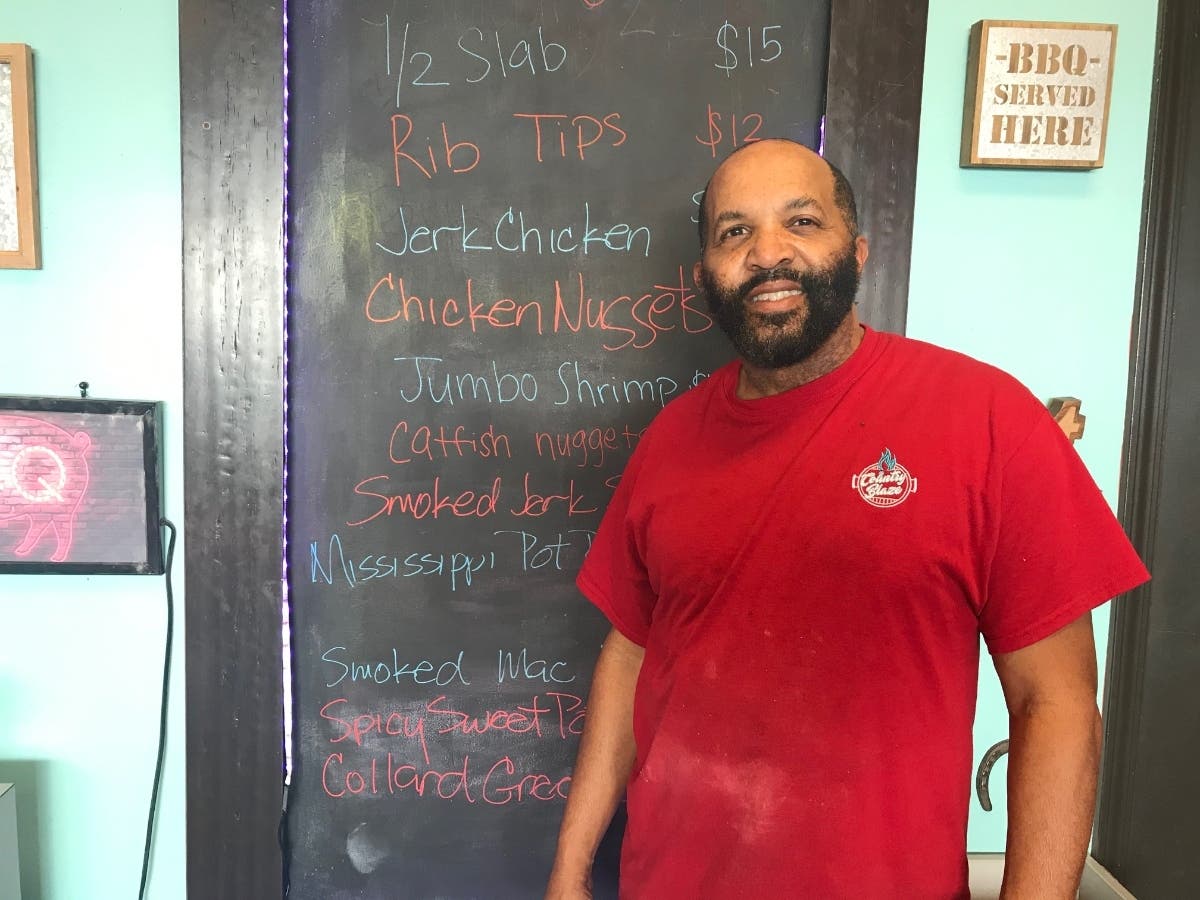 1/2 Slab $15
Rib Tips $12
Jerk Chicken
Chicken Nuggets
Jumbo Shrimp $
Catfish nuggets
Smoked Jerk
Mississippi Pot
Smoked Mac
Spicy Sweet
Collard
-BBQ-
SERVED
HERE
Country
Blaze
Q